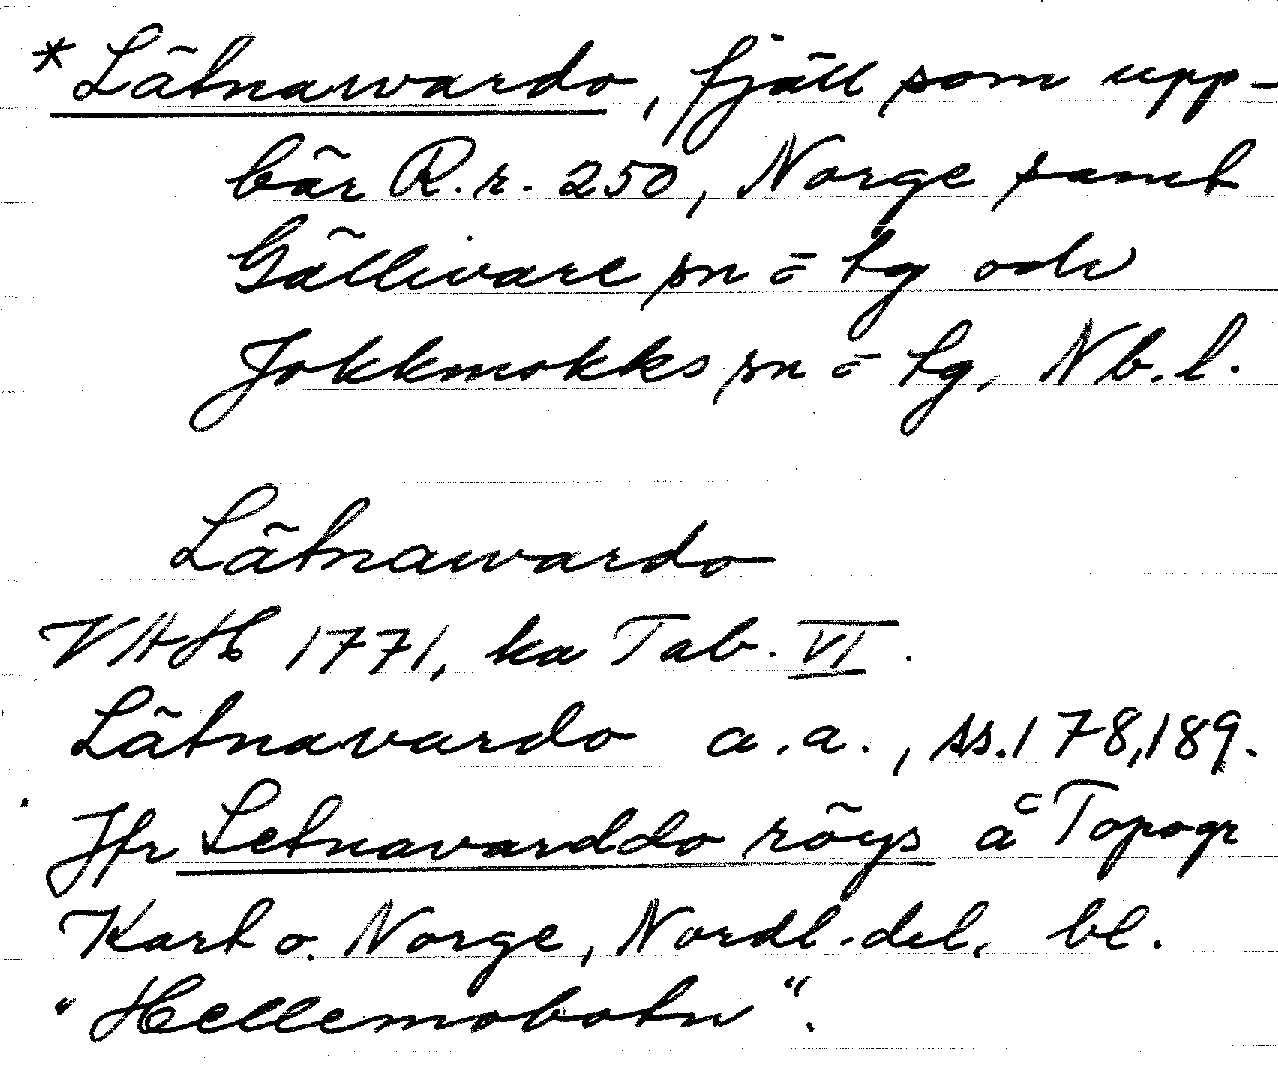 *Lätnawardo, fjäll som upp-
bär R.r. 250, Norge samt
Gällivare sn = tg och
Jokkmokks sn = tg, Nb. l.
Lätnawardo
VHH 1771, ka Tab. VI.
Lätnavardo a.a., ss. 178, 189.
Jfr Letnavarddo röys å Topogr
Kart o. Norge, Nordl. del, bl.
"Hellemobotn".